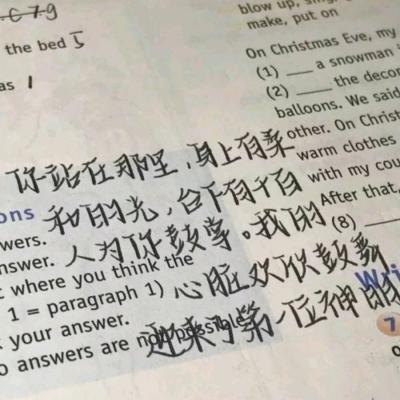 blow up, sing,
make, put on
the bed 5
as 1
On Christmas Eve, my
(1) ___ a snowman
(2) ___ the decor
balloons. We said
other. On Christ
warm clothes
with my cou
After that,
(8) ___
你站在那里,身上有柔
和的光,台下有千百
人为你鼓掌。我的
心脏欢欣鼓舞
迎来了第一位神明
ons
wers.
nswer.
t where you think the
1 = paragraph 1)
k your answer.
o answers are not possible
Wri
7